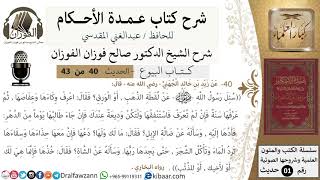 شرح كتاب عمدة الأحكام
للحافظ / عبدالغني المقدسي
شرح الشيخ الدكتور صالح فوزان الفوزان
كتاب البيوع
الحديث 40 من 43
الفوزان
40- عن زيد بن خالد الجهني رضي الله عنه قال:
سئل رسول الله ﷺ عن لقطة الذهب، أو الورق؟ فقال: اعرف وكاءها وعفاصها، ثم
عرفها سنة فإن لم تعرف فاستنفقها ولتكن وديعة عندك فإن جاء طالبها يوما من الدهر
فأدها إليه، وسأله عن ضالة الإبل؟ فقال: ما لك ولها؟ دعها فإن معها حذاءها وسقاءها،
ترد الماء وتأكل الشجر، حتى يجدها ربها، وسأله عن الشاة؟ فقال: خذها فإنما هي لك،
أو لأخيك، أو للذئب. رواه البخاري.
سلسلة الكتب والمتون
العلمية وشروحها الصوتية
رقم 01 حديث
Dralfawzann
kibaar.com